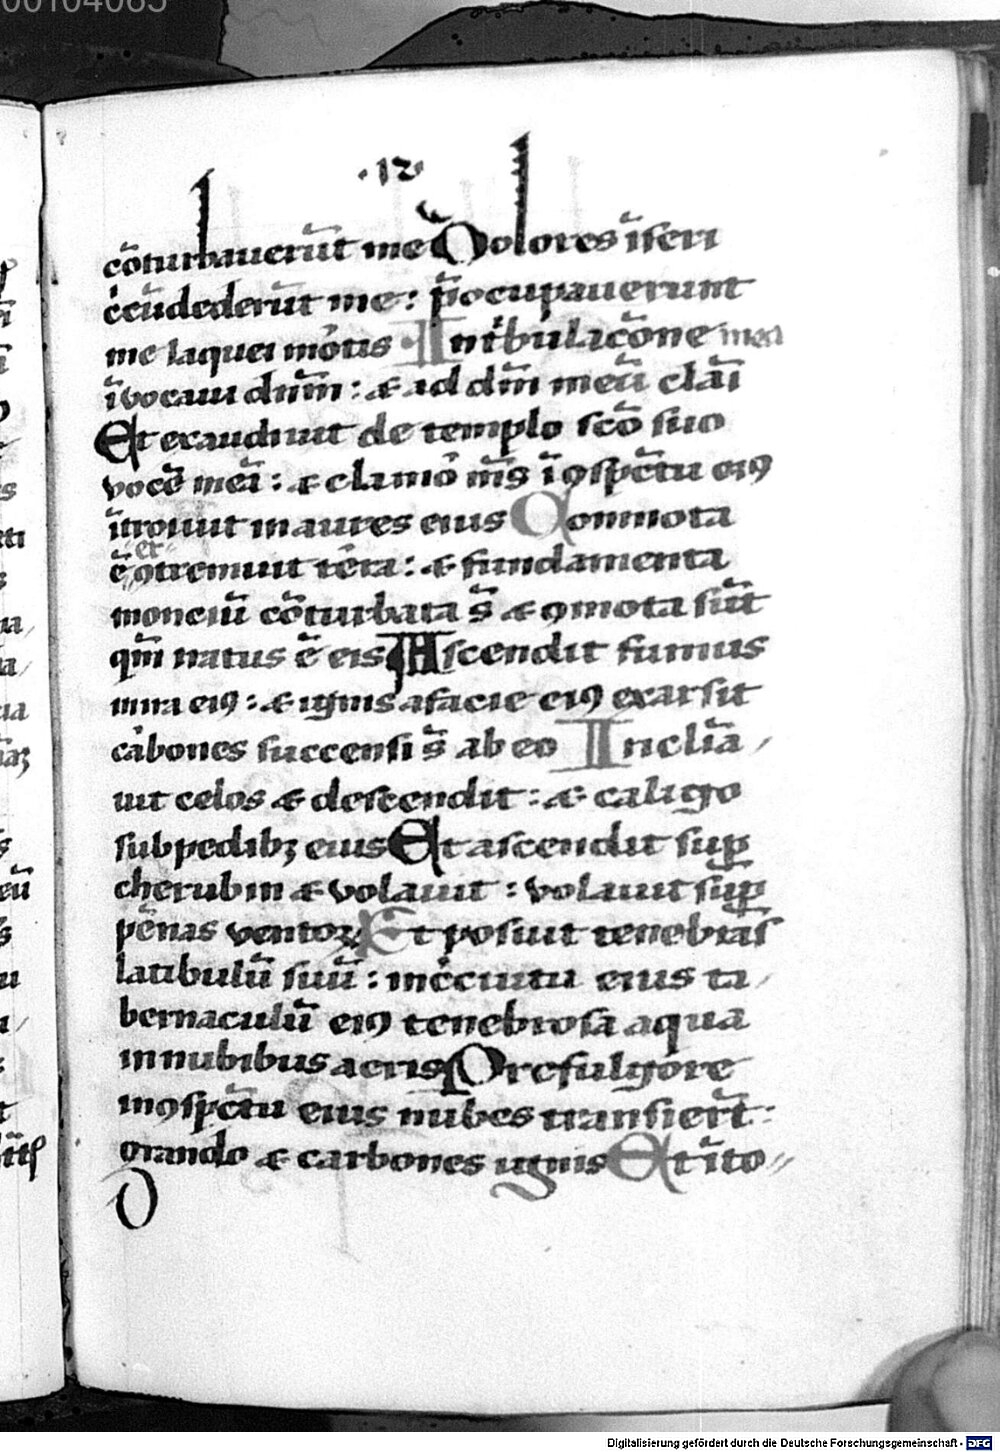 00104085
.12.
cōturbauerūt me Dolores īferi
c̓cūdederūt me : p̄ocupauerunt
me laquei mōtis In t'bulacōne mea
īvocaui dnm̄ : & ad dm̄ meū clāī
Et exaudiuit de templo scō suo
vocē meā : & clamō m̄s ī ꝯspc̄tu eiꝰ
ītroiuit in aures eius Conmota
ē et ꝯtremuit tēra : & fundamenta
monciū cōturbata s̄ & ꝯmota sūt
qm̄ iratus ē eis Ascendit fumus
in ira eiꝰ : & ignis a facie eiꝰ exarsit
cābones succensi s̄ ab eo Inclīa
uit celos & descendit : & caligo
sub pedibꝫ eius Et ascendit sup
cherubin & volauit : volauit sup̄
pēnas ventoꝝ Et posuit tenebrās
latibulū suū : in c̓cuitu eius ta
bernaculū eiꝰ tenebrosa aqua
in nubibus aeris Pre fulgore
in ꝯspc̄tu eius nubes transiert̄ :
grando & carbones ignis Et īto
Digitalisierung gefördert durch die Deutsche Forschungsgemeinschaft - DFG